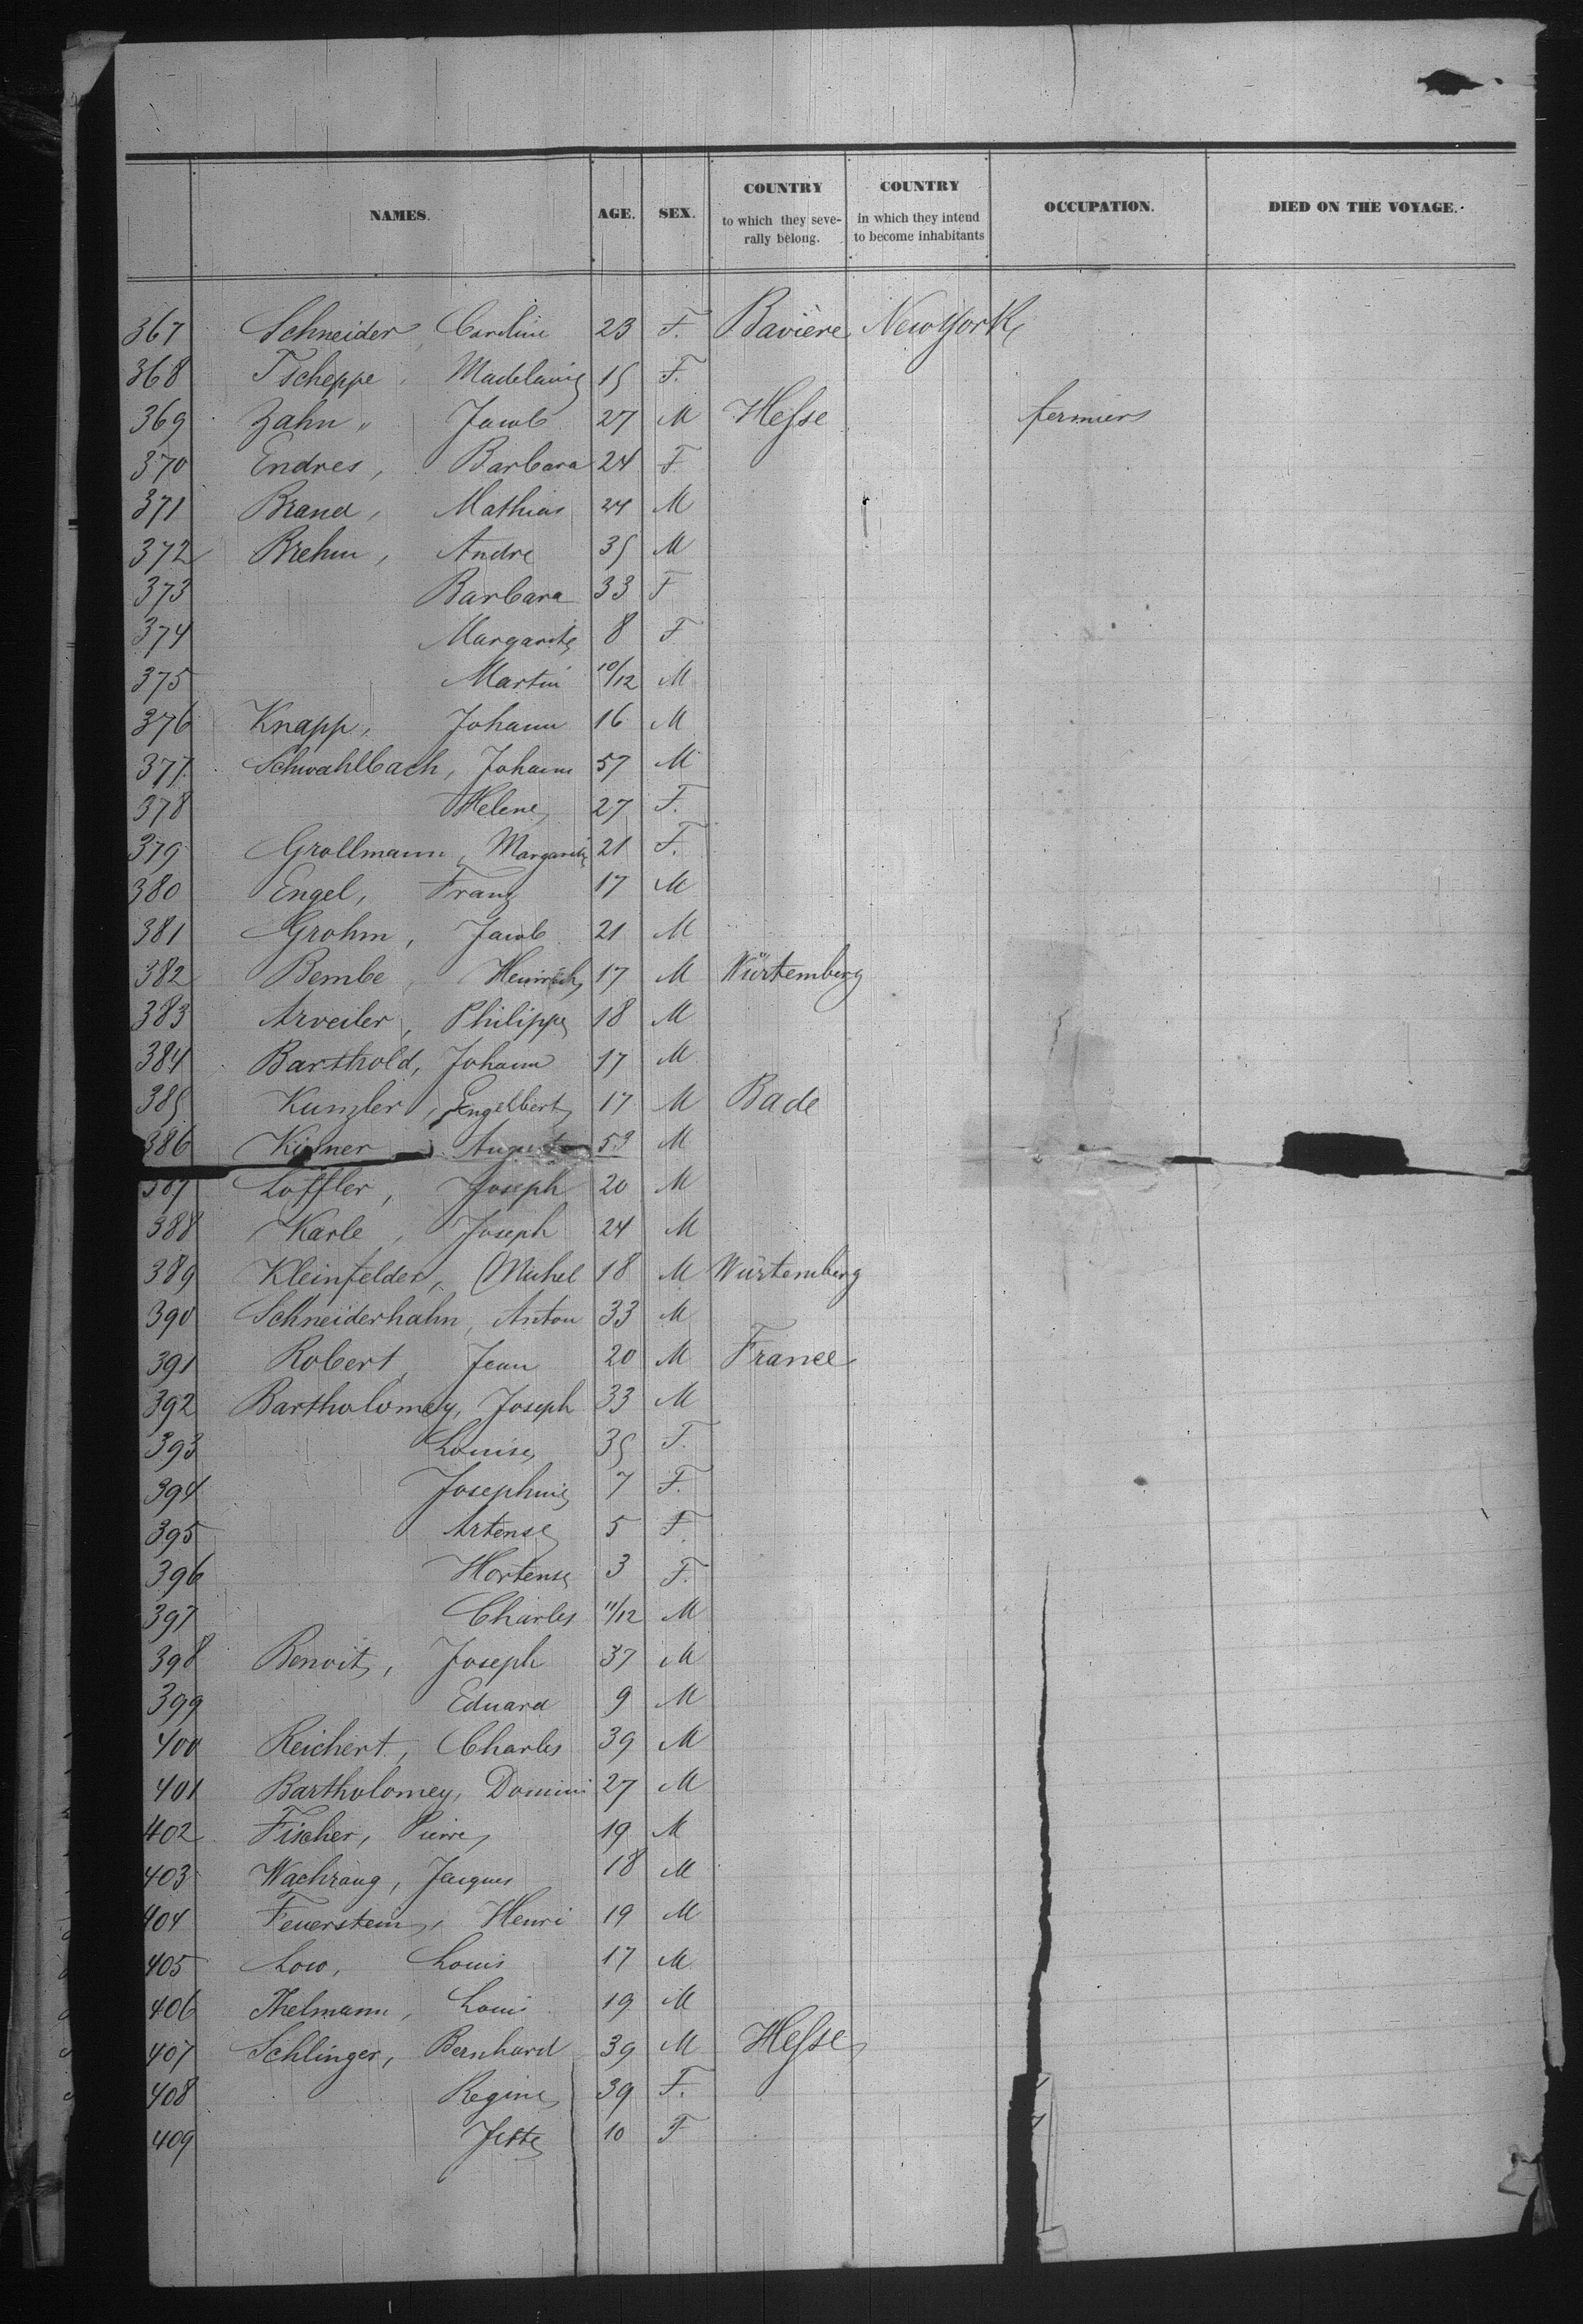 NAMES. AGE. SEX. COUNTRY to which they seve- rally belong. COUNTRY in which they intend to become inhabitants OCCUPATION. DIED ON THE VOYAGE.
367 Schneider, Caroline 23 F. Bavière New York
368 Tscheppe, 15 F.
369 Zahn " Jacob 27 M Hesse fermiers
370 Endres, Barbara 24 F
371 Brand, Mathias 24 M
372 Brehm, Andre 35 M
373 Barbara 33 F
374 Margarite 8 F
375 Martin 10/12 M
376 Knapp, Johann 16 M
377 Schwahlbach, Johann 57 M
378 Helene 27 F.
379 Grollmann, Margarite 21 F.
380 Engel, Franz 17 M
381 Grohm, Jacob 21 M
382 Bembe, Heinrich 17 M Würtemberg
383 Arveiler, Philippe 18 M
384 Barthold, Johann 17 M
385 Kunzler, Engelbert 17 M Bade
386 August 53 M
387 Loffler, Joseph 20 M
388 Karle, Joseph 24 M
389 Kleinfelder, Michel 18 M Würtemberg
390 Schneiderhahn, Anton 33 M
391 Robert, Jean 20 M France
392 Bartholomey, Joseph 33 M
393 Louise 35 F.
394 Josephine 7 F.
395 Artense 5 F
396 Hortense 3 F.
397 Charles 11/12 M
398 Benoit, Joseph 37 M
399 Eduard 9 M
400 Reichert, Charles 39 M
401 Bartholomey, Domini 27 M
402 Fischer, Pierre 19 M
403 Jacques 18 M
404 Feuerstein, Henri 19 M
405 Low, Louis 17 M
406 Thelmann, Louis 19 M
407 Schlinger, Bernhard 39 M Hesse
408 Regine 39 F.
409 Jette 10 F